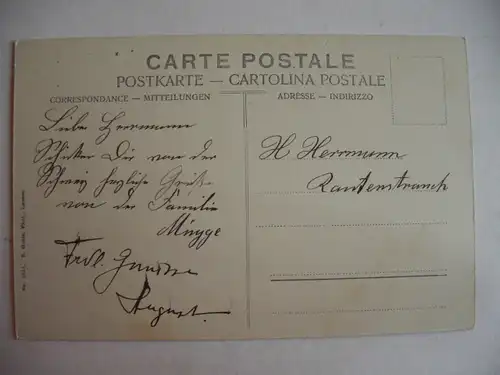 CARTE POSTALE
POSTKARTE — CARTOLINA POSTALE
CORRESPONDANCE — MITTEILUNGEN
ADRESSE — INDIRIZZO
Liebe Herrmann
Schicken Dir von der
Schweiz herzliche Grüße
von der Familie
Mügge
Frdl.
August.
H Herrmann
Rautenstrauch